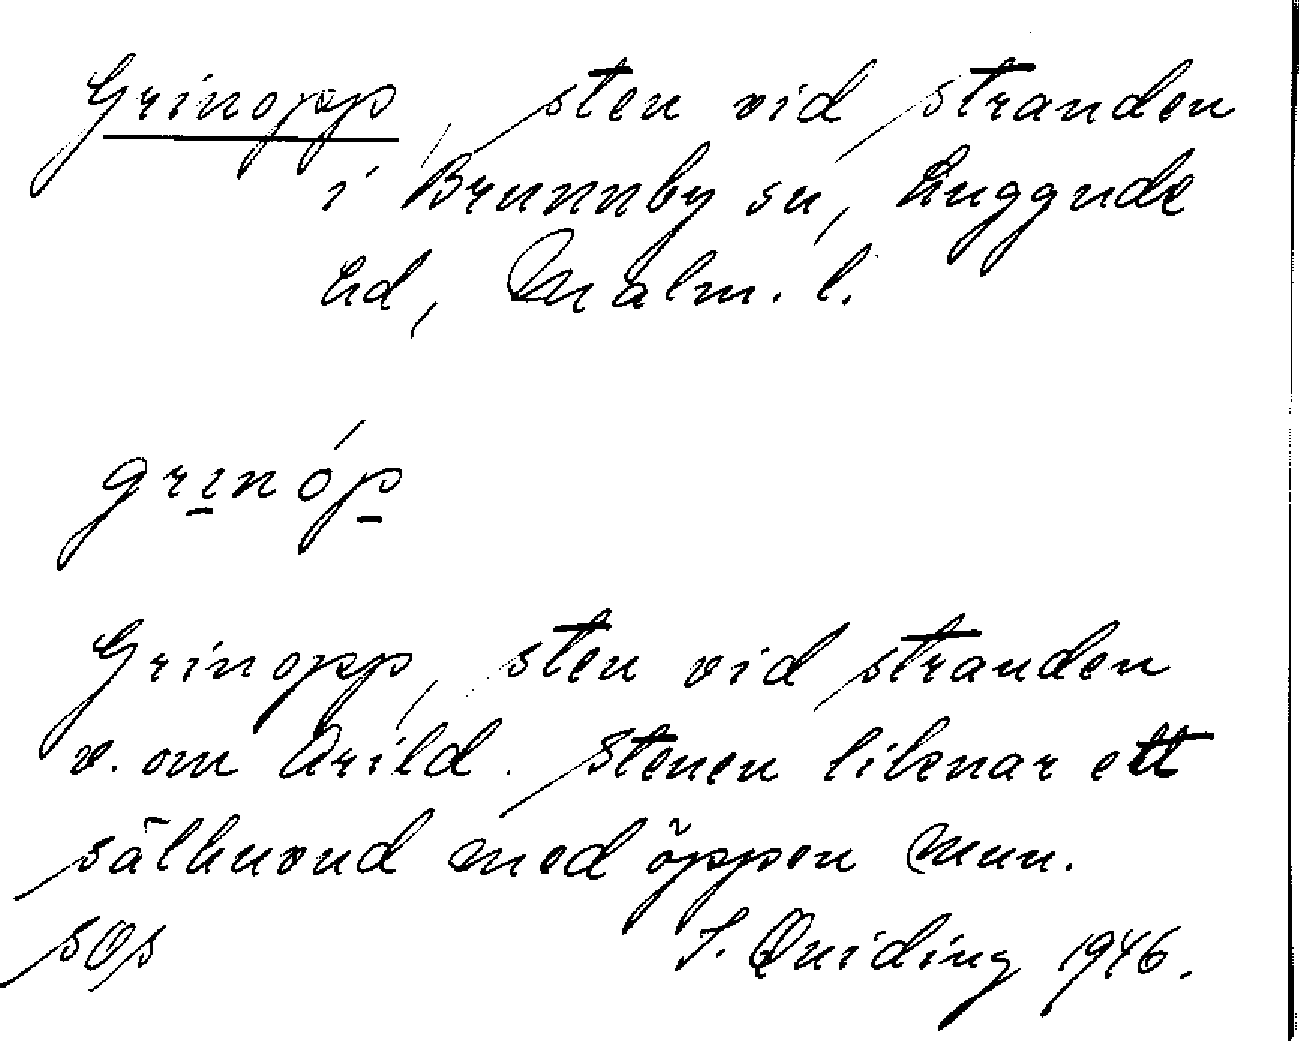 Grinopp, sten vid stranden
i Brunnby sn, Luggude
hd, Malm. l.
grinóp
Grinopp, sten vid stranden
v. om Arild. Stenen liknar ett
sälhuvud med öppen mun.
SOs S. Quiding 1946.